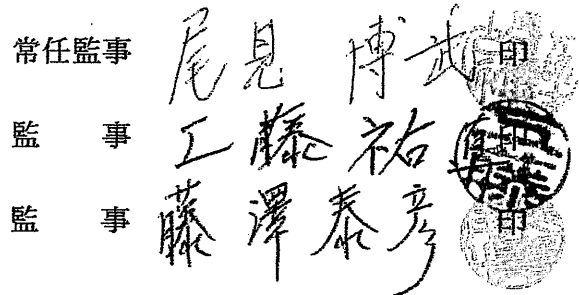 常任監事 尾見 博武 印
監 事 工藤 祐
監 事 藤澤 泰彦 印